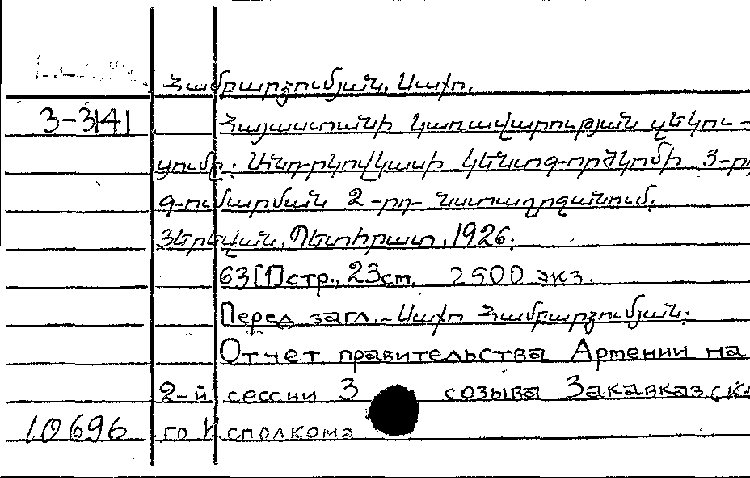 Համբարձումյան, Սախո.
3-3141 Հայաստանի կառավարության զեկու-
ցումը: Անդրկովկասի կենտգործկոմի 3-րդ
գումարման 2-րդ նստաշրջանում.
Յերեվան, Պետհրատ, 1926.
63[1]стр., 23см. 2500 экз.
Перед загл.- Սախո Համբարձումյան:
Отчет правительства Армении на
2-й сессии 3 созыва Закавказск
10696 го Исполкома